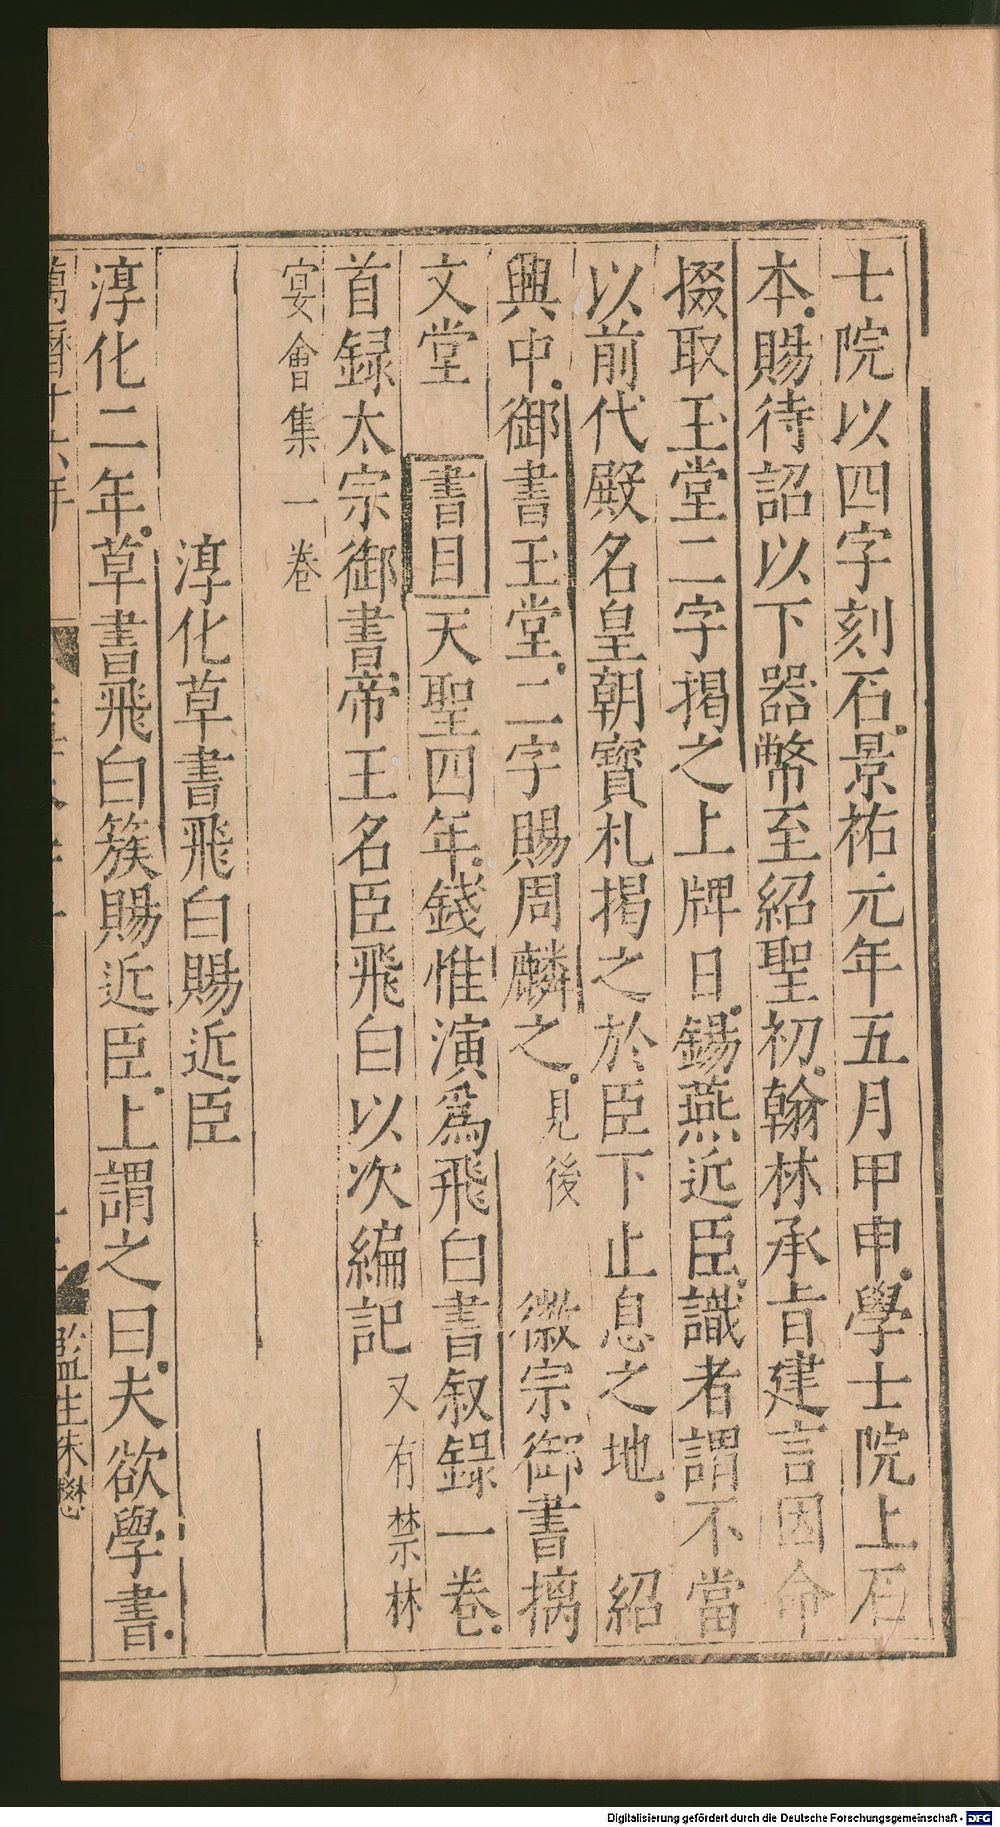 七院以四字刻石景祐元年五月甲申學士院上石
本賜待詔以下器幣至紹聖初翰林承旨建言因命
掇取玉堂二字掲之上牌日錫燕近臣識者謂不當
以前代殿名皇朝寳札掲之於臣下止息之地 紹
興中御書玉堂二字賜周麟之見後 徽宗御書摛
文堂 書目天聖四年錢惟演爲飛白書叙錄一卷
首録太宗御書帝王名臣飛白以次編記又有禁林
宴會集一卷
淳化草書飛白賜近臣
淳化二年草書飛白簇賜近臣上謂之曰夫欲學書
萬曆十六年
監生朱懋
Digitalisierung gefördert durch die Deutsche Forschungsgemeinschaft - DFG